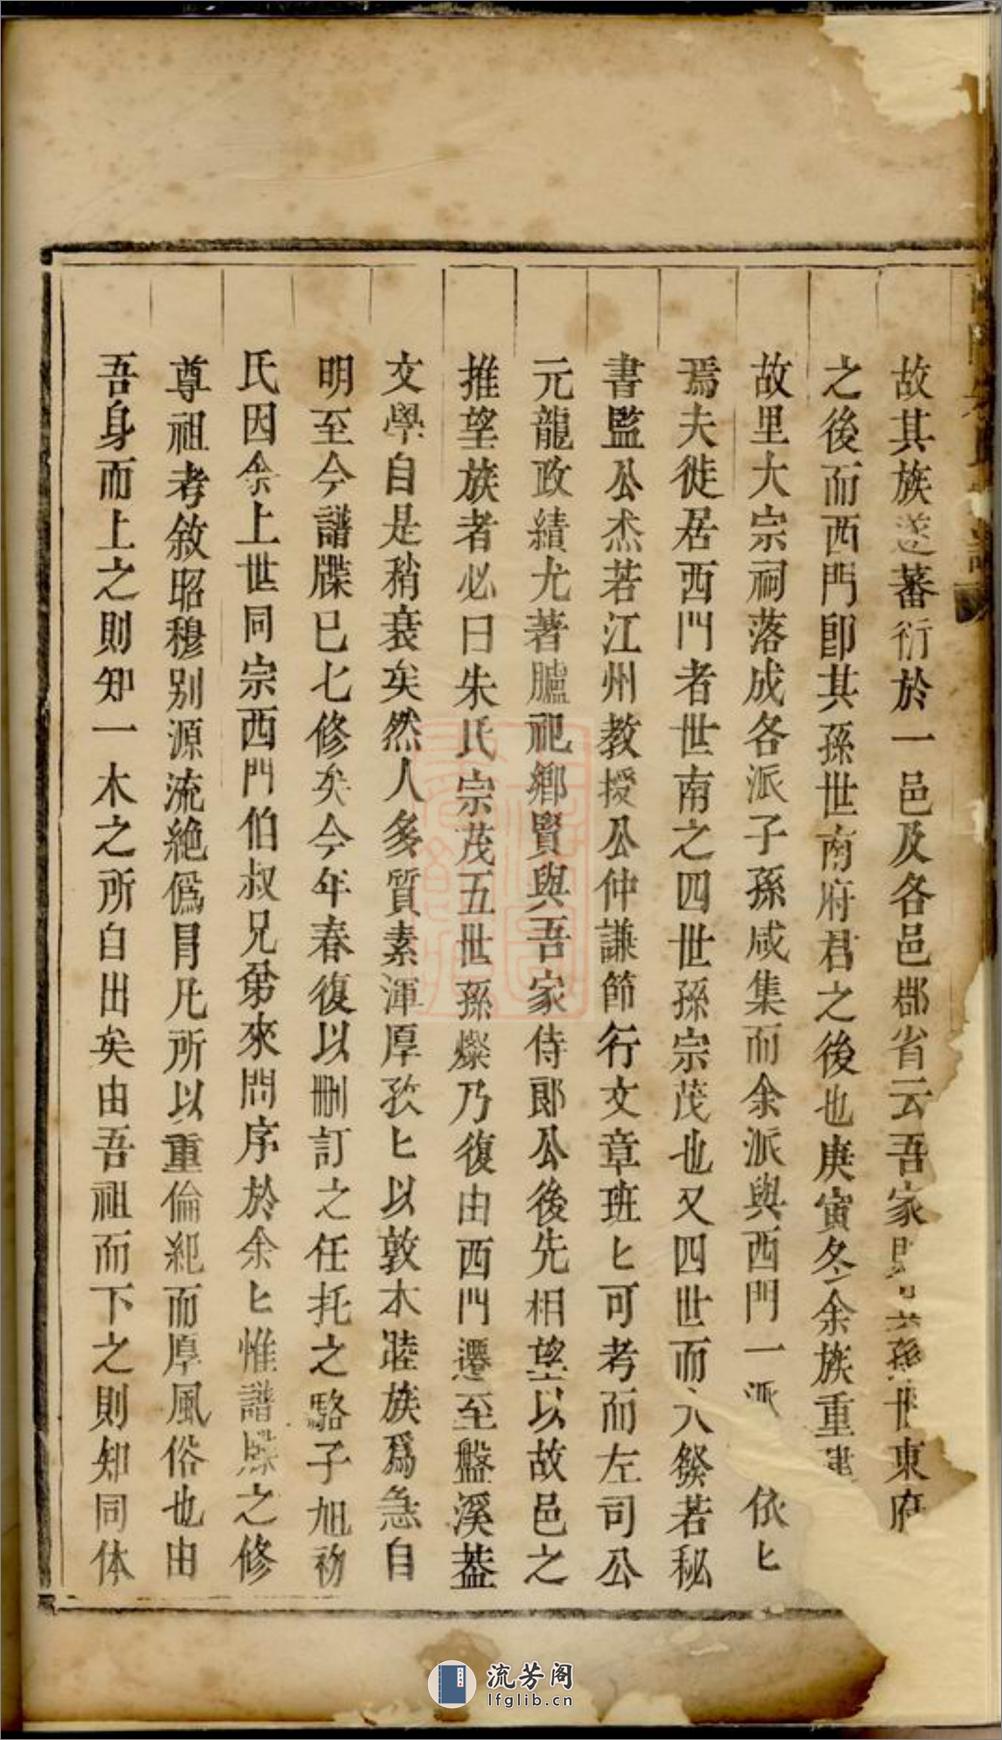 故其族遂蕃衍於一邑及各邑郡省云吾家孫世東府
之後而西門卽其孫世南府君之後也庚寅冬余族重建
故里大宗祠落成各派子孫咸集而余派與西門一派依匕
焉夫徙居西門者世南之四世孫宗茂也又四世而大發若秘
書監公杰若江州教授公仲謙節行文章班匕可考而左司公
元龍政績尤著臚祀鄉賢與吾家侍郎公後先相望以故邑之
推望族者必曰朱氏宗茂五世孫燦乃復由西門遷至盤溪葢
文學自是稍衰矣然人多質素渾厚孜匕以敦本睦族爲急自
明至今譜牒已七修矣今年春復以刪訂之任托之駱子旭初
氏因余上世同宗西門伯叔兄弟來問序於余匕惟譜牒之修
尊祖考敘昭穆别源流絶僞冐凡所以重倫紀而厚風俗也由
吾身而上之則知一木之所自出矣由吾祖而下之則知同体
流芳阁
lfglib.cn